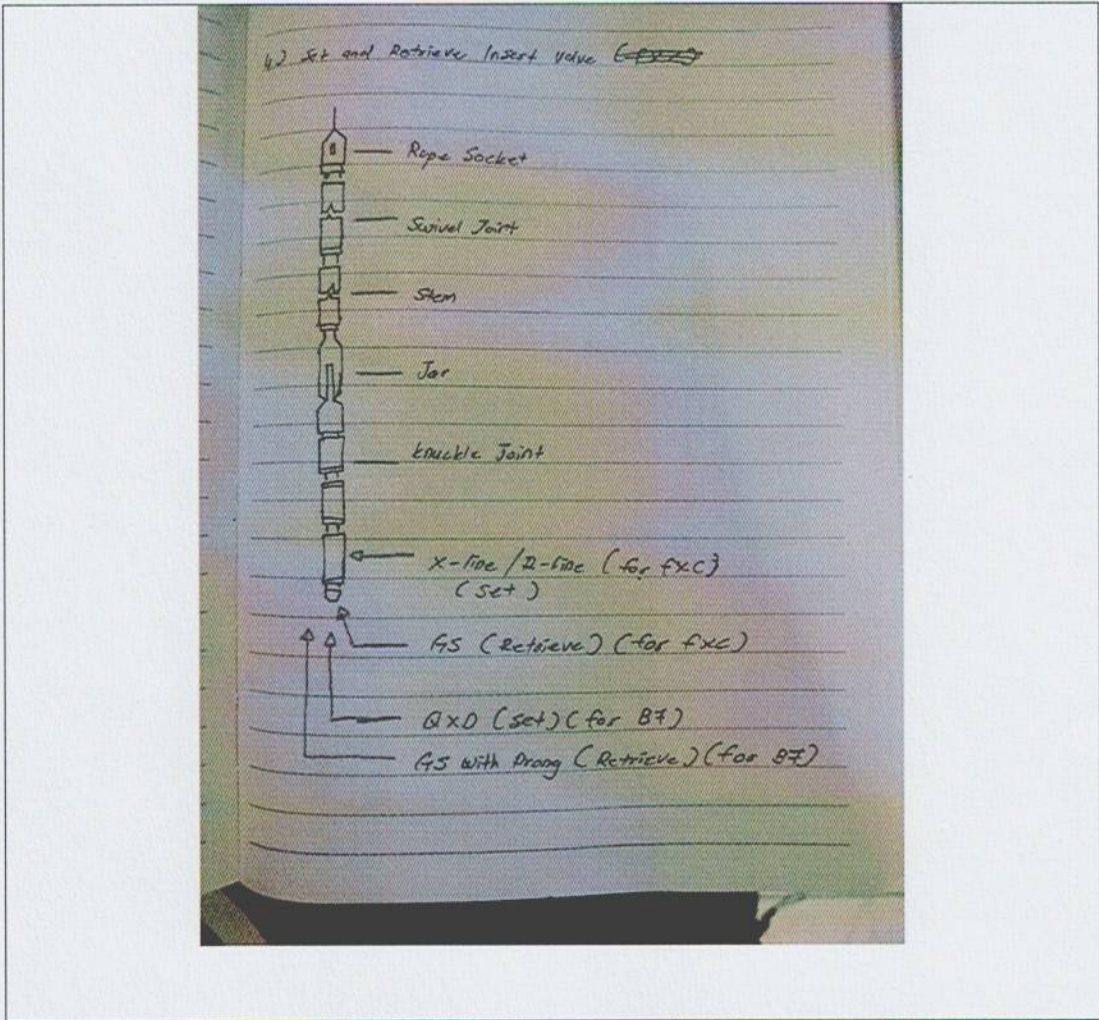 4) Set and Retrieve Insert Valve
Rope Socket
Swivel Joint
Stem
Jar
Knuckle Joint
X-line / Z-line (for fxc)
(Set)
GS (Retrieve) (for fxc)
QXD (set) (for B7)
GS with Prong (Retrieve) (for B7)